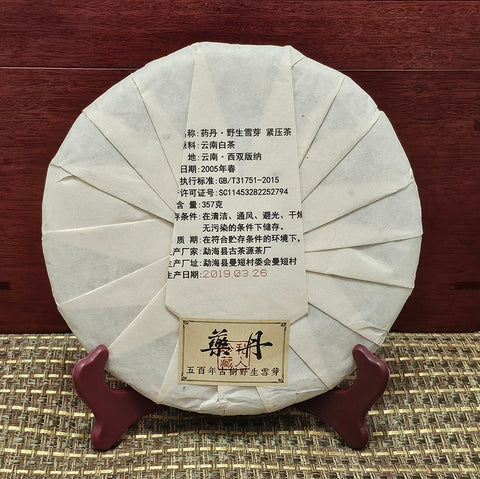 名称:药丹·野生雪芽 紧压茶
料:云南白茶
地:云南·西双版纳
日期:2005年春
执行标准:GB/T31751-2015
许可证号:SC11453282252794
含 量:357克
存条件:在清洁、通风、避光、干燥
无污染的条件下储存。
质 期:在符合贮存条件的环境下,
生产厂家:勐海县古茶源茶厂
生产厂址:勐海县曼短村委会曼短村
生产日期:2019.03.26
藥丹
五百年古樹野生雪芽